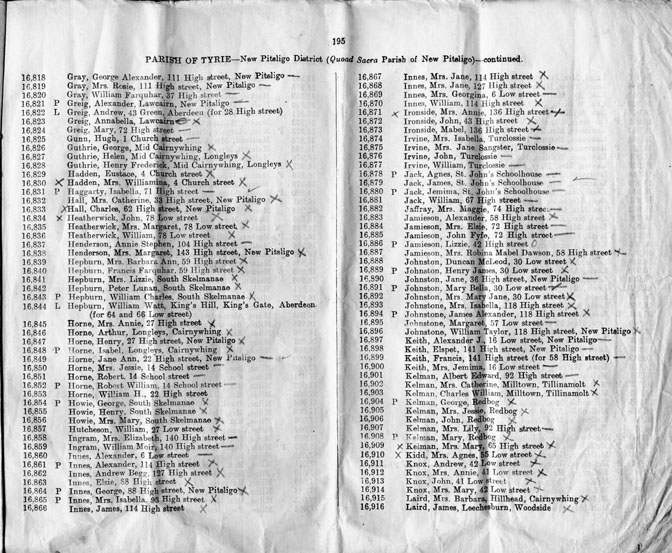 195
PARISH OF TYRIE—New Pitsligo District (Quoad Sacra Parish of New Pitsligo)—continued.
16,818 Gray, George Alexander, 111 High street, New Pitsligo
16,819 Gray, Mrs. Rosie, 111 High street, New Pitsligo
16,820 Gray, William Farquhar, 37 High street
16,821 P Greig, Alexander, Lawcairn, New Pitsligo
16,822 L Greig, Andrew, 43 Green, Aberdeen (for 28 High street)
16,823 Greig, Annabella, Lawcairn
16,824 Greig, Mary, 72 High street
16,825 Gunn, Hugh, 1 Church street
16,826 Guthrie, George, Mid Cairnywhing
16,827 Guthrie, Helen, Mid Cairnywhing, Longleys
16,828 Guthrie, Henry Frederick, Mid Cairnywhing, Longleys
16,829 Hadden, Eustace, 4 Church street
16,830 Hadden, Mrs. Williamina, 4 Church street
16,831 P Haggarty, Isabella, 71 High street
16,832 Hall, Mrs. Catherine, 33 High street, New Pitsligo
16,833 Hall, Charles, 62 High street, New Pitsligo
16,834 Heatherwick, John, 78 Low street
16,835 Heatherwick, Mrs. Margaret, 78 Low street
16,836 Heatherwick, William, 78 Low street
16,837 Henderson, Annie Stephen, 104 High street
16,838 Henderson, Mrs. Margaret, 143 High street, New Pitsligo
16,839 Hepburn, Mrs. Barbara Ann, 59 High street
16,840 Hepburn, Francis Farquhar, 59 High street
16,841 Hepburn, Mrs. Lizzie, South Skelmanae
16,842 Hepburn, Peter Lunan, South Skelmanae
16,843 P Hepburn, William Charles, South Skelmanae
16,844 L Hepburn, William Watt, King's Hill, King's Gate, Aberdeen
(for 64 and 66 Low street)
16,845 Horne, Mrs. Annie, 27 High street
16,846 Horne, Arthur, Longleys, Cairnywhing
16,847 Horne, Henry, 27 High street, New Pitsligo
16,848 P Horne, Isabel, Longleys, Cairnywhing
16,849 Horne, Jane Ann, 22 High street, New Pitsligo
16,850 Horne, Mrs. Jessie, 14 School street
16,851 Horne, Robert, 14 School street
16,852 P Horne, Robert William, 14 School street
16,853 Horne, William H., 22 High street
16,854 P Howie, George, South Skelmanae
16,855 Howie, Henry, South Skelmanae
16,856 Howie, Mrs. Mary, South Skelmanae
16,857 Hutcheson, William, 27 Low street
16,858 Ingram, Mrs. Elizabeth, 140 High street
16,859 Ingram, William Moir, 140 High street
16,860 Innes, Alexander, 6 Low street
16,861 P Innes, Alexander, 114 High street
16,862 Innes, Andrew Begg, 127 High street
16,863 Innes, Elsie, 88 High street
16,864 P Innes, George, 88 High street, New Pitsligo
16,865 P Innes, Mrs. Isabella, 93 High street
16,866 Innes, James, 114 High street
16,867 Innes, Mrs. Jane, 114 High street
16,868 Innes, Mrs. Jane, 127 High street
16,869 Innes, Mrs. Georgina, 6 Low street
16,870 Innes, William, 114 High street
16,871 Ironside, Mrs. Annie, 136 High street
16,872 Ironside, John, 43 High street
16,873 Ironside, Mabel, 136 High street
16,874 Irvine, Mrs. Isabella, Turclossie
16,875 Irvine, Mrs. Jane Sangster, Turclossie
16,876 Irvine, John, Turclossie
16,877 Irvine, William, Turclossie
16,878 P Jack, Agnes, St. John's Schoolhouse
16,879 Jack, James, St. John's Schoolhouse
16,880 P Jack, Jemima, St. John's Schoolhouse
16,881 Jack, William, 67 High street
16,882 Jaffray, Mrs. Maggie, 74 High street
16,883 Jamieson, Alexander, 58 High street
16,884 Jamieson, Mrs. Elsie, 72 High street
16,885 Jamieson, John Fyfe, 72 High street
16,886 P Jamieson, Lizzie, 42 High street
16,887 Jamieson, Mrs. Robina Mabel Dawson, 58 High street
16,888 Johnston, Duncan McLeod, 30 Low street
16,889 P Johnston, Henry James, 30 Low street
16,890 Johnston, Jane, 36 High street, New Pitsligo
16,891 P Johnston, Mary Bella, 30 Low street
16,892 Johnston, Mrs. Mary Jane, 30 Low street
16,893 Johnstone, Mrs. Isabella, 118 High street
16,894 P Johnstone, James Alexander, 118 High street
16,895 Johnstone, Margaret, 57 Low street
16,896 Johnstone, William Taylor, 118 High street, New Pitsligo
16,897 Keith, Alexander J., 16 Low street, New Pitsligo
16,898 Keith, Elspet, 141 High street, New Pitsligo
16,899 Keith, Francis, 141 High street (for 58 High street)
16,900 Keith, Mrs. Jemima, 16 Low street
16,901 Kelman, Albert Edward, 92 High street
16,902 Kelman, Mrs. Catherine, Milltown, Tillinamolt
16,903 Kelman, Charles William, Milltown, Tillinamolt
16,904 P Kelman, George, Redbog
16,905 Kelman, Mrs. Jessie, Redbog
16,906 Kelman, John, Redbog
16,907 Kelman, Mrs. Lily, 92 High street
16,908 P Kelman, Mary, Redbog
16,909 Kelman, Mrs. Mary, 65 High street
16,910 Kidd, Mrs. Agnes, 55 Low street
16,911 Knox, Andrew, 42 Low street
16,912 Knox, Mrs. Annie, 41 Low street
16,913 Knox, John, 41 Low street
16,914 Knox, Mrs. Mary, 42 Low street
16,915 Laird, Mrs. Barbara, Hillhead, Cairnywhing
16,916 Laird, James, Leechesburn, Woodside